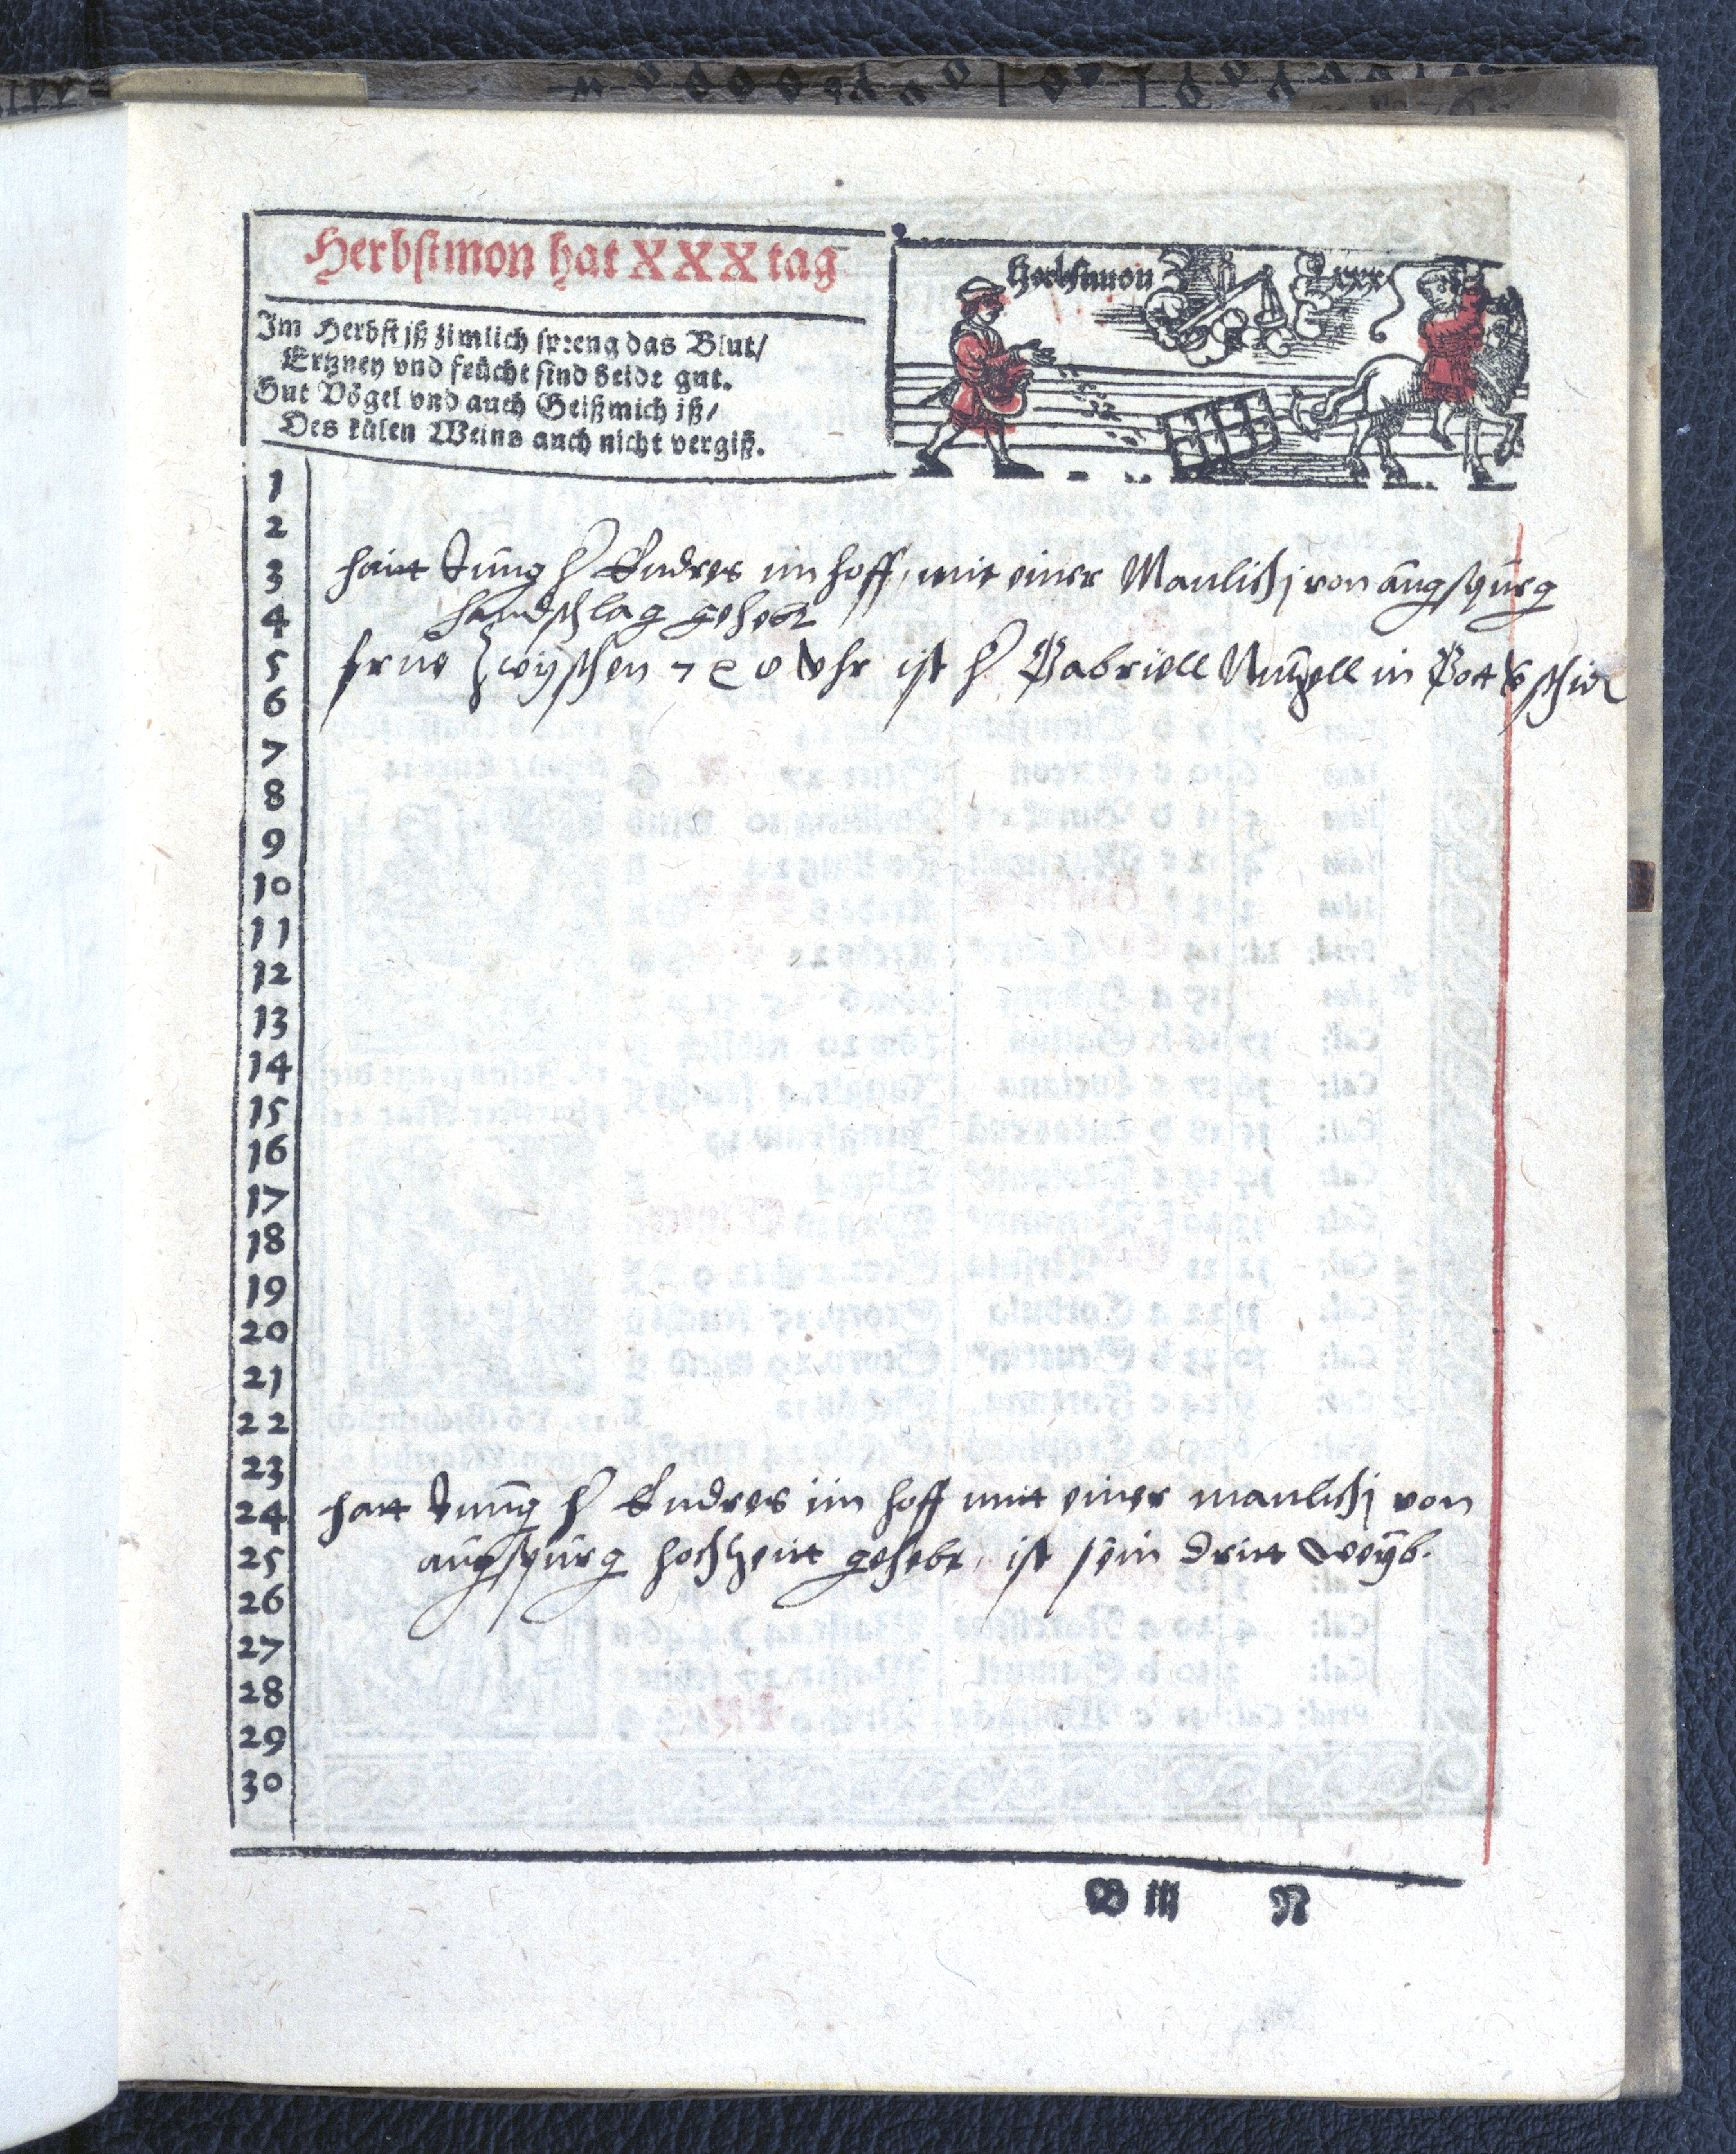 Herbstmon hat XXX tag
Herbstmon
Im Herbst iß zimlich spreng das Blut/
Ertzney vnd früchr sind beide gut.
Gut Vögel vnd auch Geißmich iß/
Des külen Weins auch nicht vergiß.
1
2
3 hatt Jung H Endres im hoff, mit einer Manlichj von augspurg
4 handschlag gehebt
5 frue zwyschen 7 8 Vhr ist H Gabriell Nuzell in Gott
6
7
8
9
10
11
12
13
14
15
16
17
18
19
20
21
22
23
24 hatt Jung H Endres im hoff mit einer manlichj von
25 augspurg hochzeit gehebt, ist sein dritt weyb.
26
27
28
29
30
B iij N